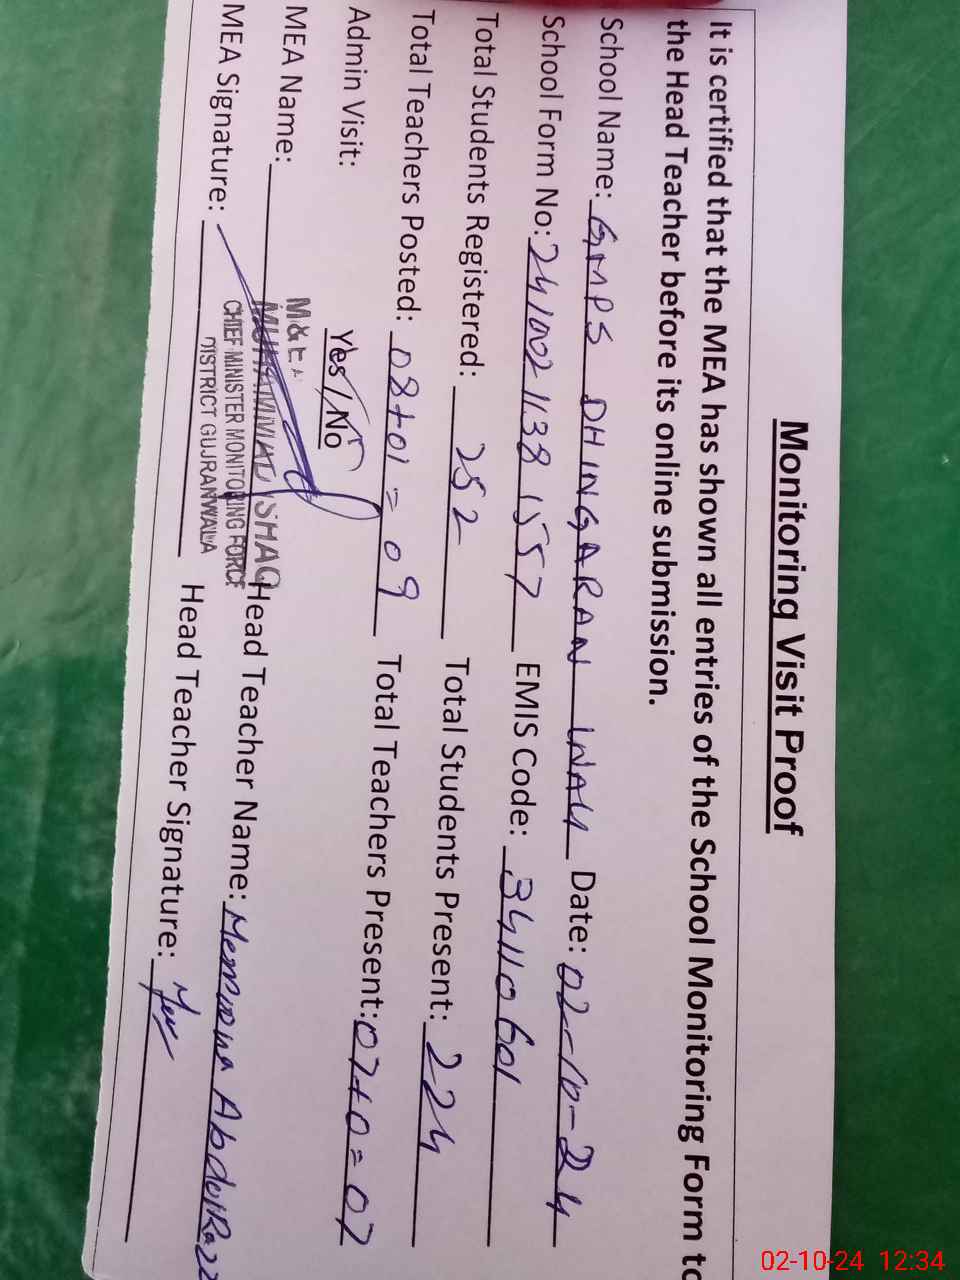 Monitoring Visit Proof
It is certified that the MEA has shown all entries of the School Monitoring Form to
the Head Teacher before its online submission.
School Name: GMPS DHINGARAN WALI Date: 02-10-24
School Form No: 241002 1138 1557 EMIS Code: 34110601
Total Students Registered: 252 Total Students Present: 224
Total Teachers Posted: 08+01 = 09 Total Teachers Present: 07+0 = 07
Admin Visit: Yes / No
M & E A
MEA Name: MUHAMMAD ISHAQ Head Teacher Name: Memoona Abdul Razz
CHIEF MINISTER MONITORING FORCE
MEA Signature: DISTRICT GUJRANWALA Head Teacher Signature:
02-10-24 12:34